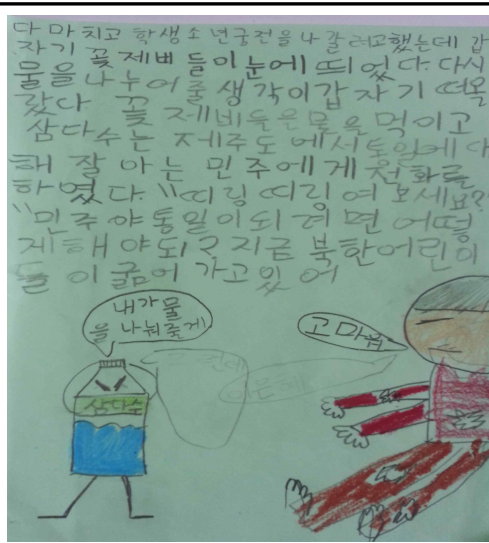 다 마치고 학생소년궁전을 나갈려고했는데 갑
자기 꽃제삐들이눈에 띄었다. 다시
물을나누어줄생각이갑자기 떠올
랐다. 꽃제비들은물을먹이고
삼다수는 제주도에서통일에대
해 잘 아는 민주에게전화를
하였다. \\띠링띠링여보세요?
\\민주야통일이되려면어떻
게해야되? 지금 북한어린이
들이굶어가고있어
내가물
을나눠줄게
고마워
삼다수